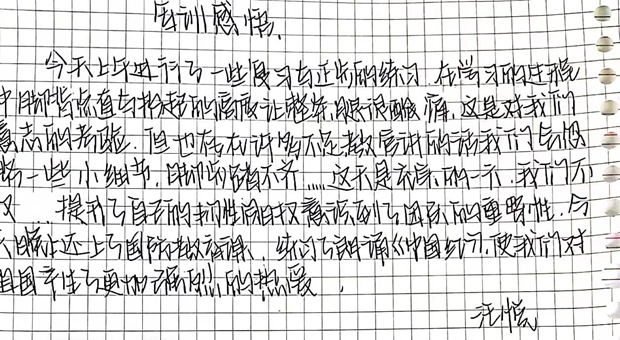 军训感悟
今天上午进行了一些复习与正步的练习,在学习的过程
中脚背点直与抬起的高度让整条腿很酸痛,这是对我们
意志的考验,但也存在许多不足,教官讲的话我们会忽
略一些小细节,脚步参差不齐……这天是充实的一天,我们不
仅 提升了自己的韧性,同时意识到了团队的重要性,今
天晚上还上了国防教育课,练习了朗诵《中国纪》,使我们对
祖国产生了更加强烈的热爱。
汪悦